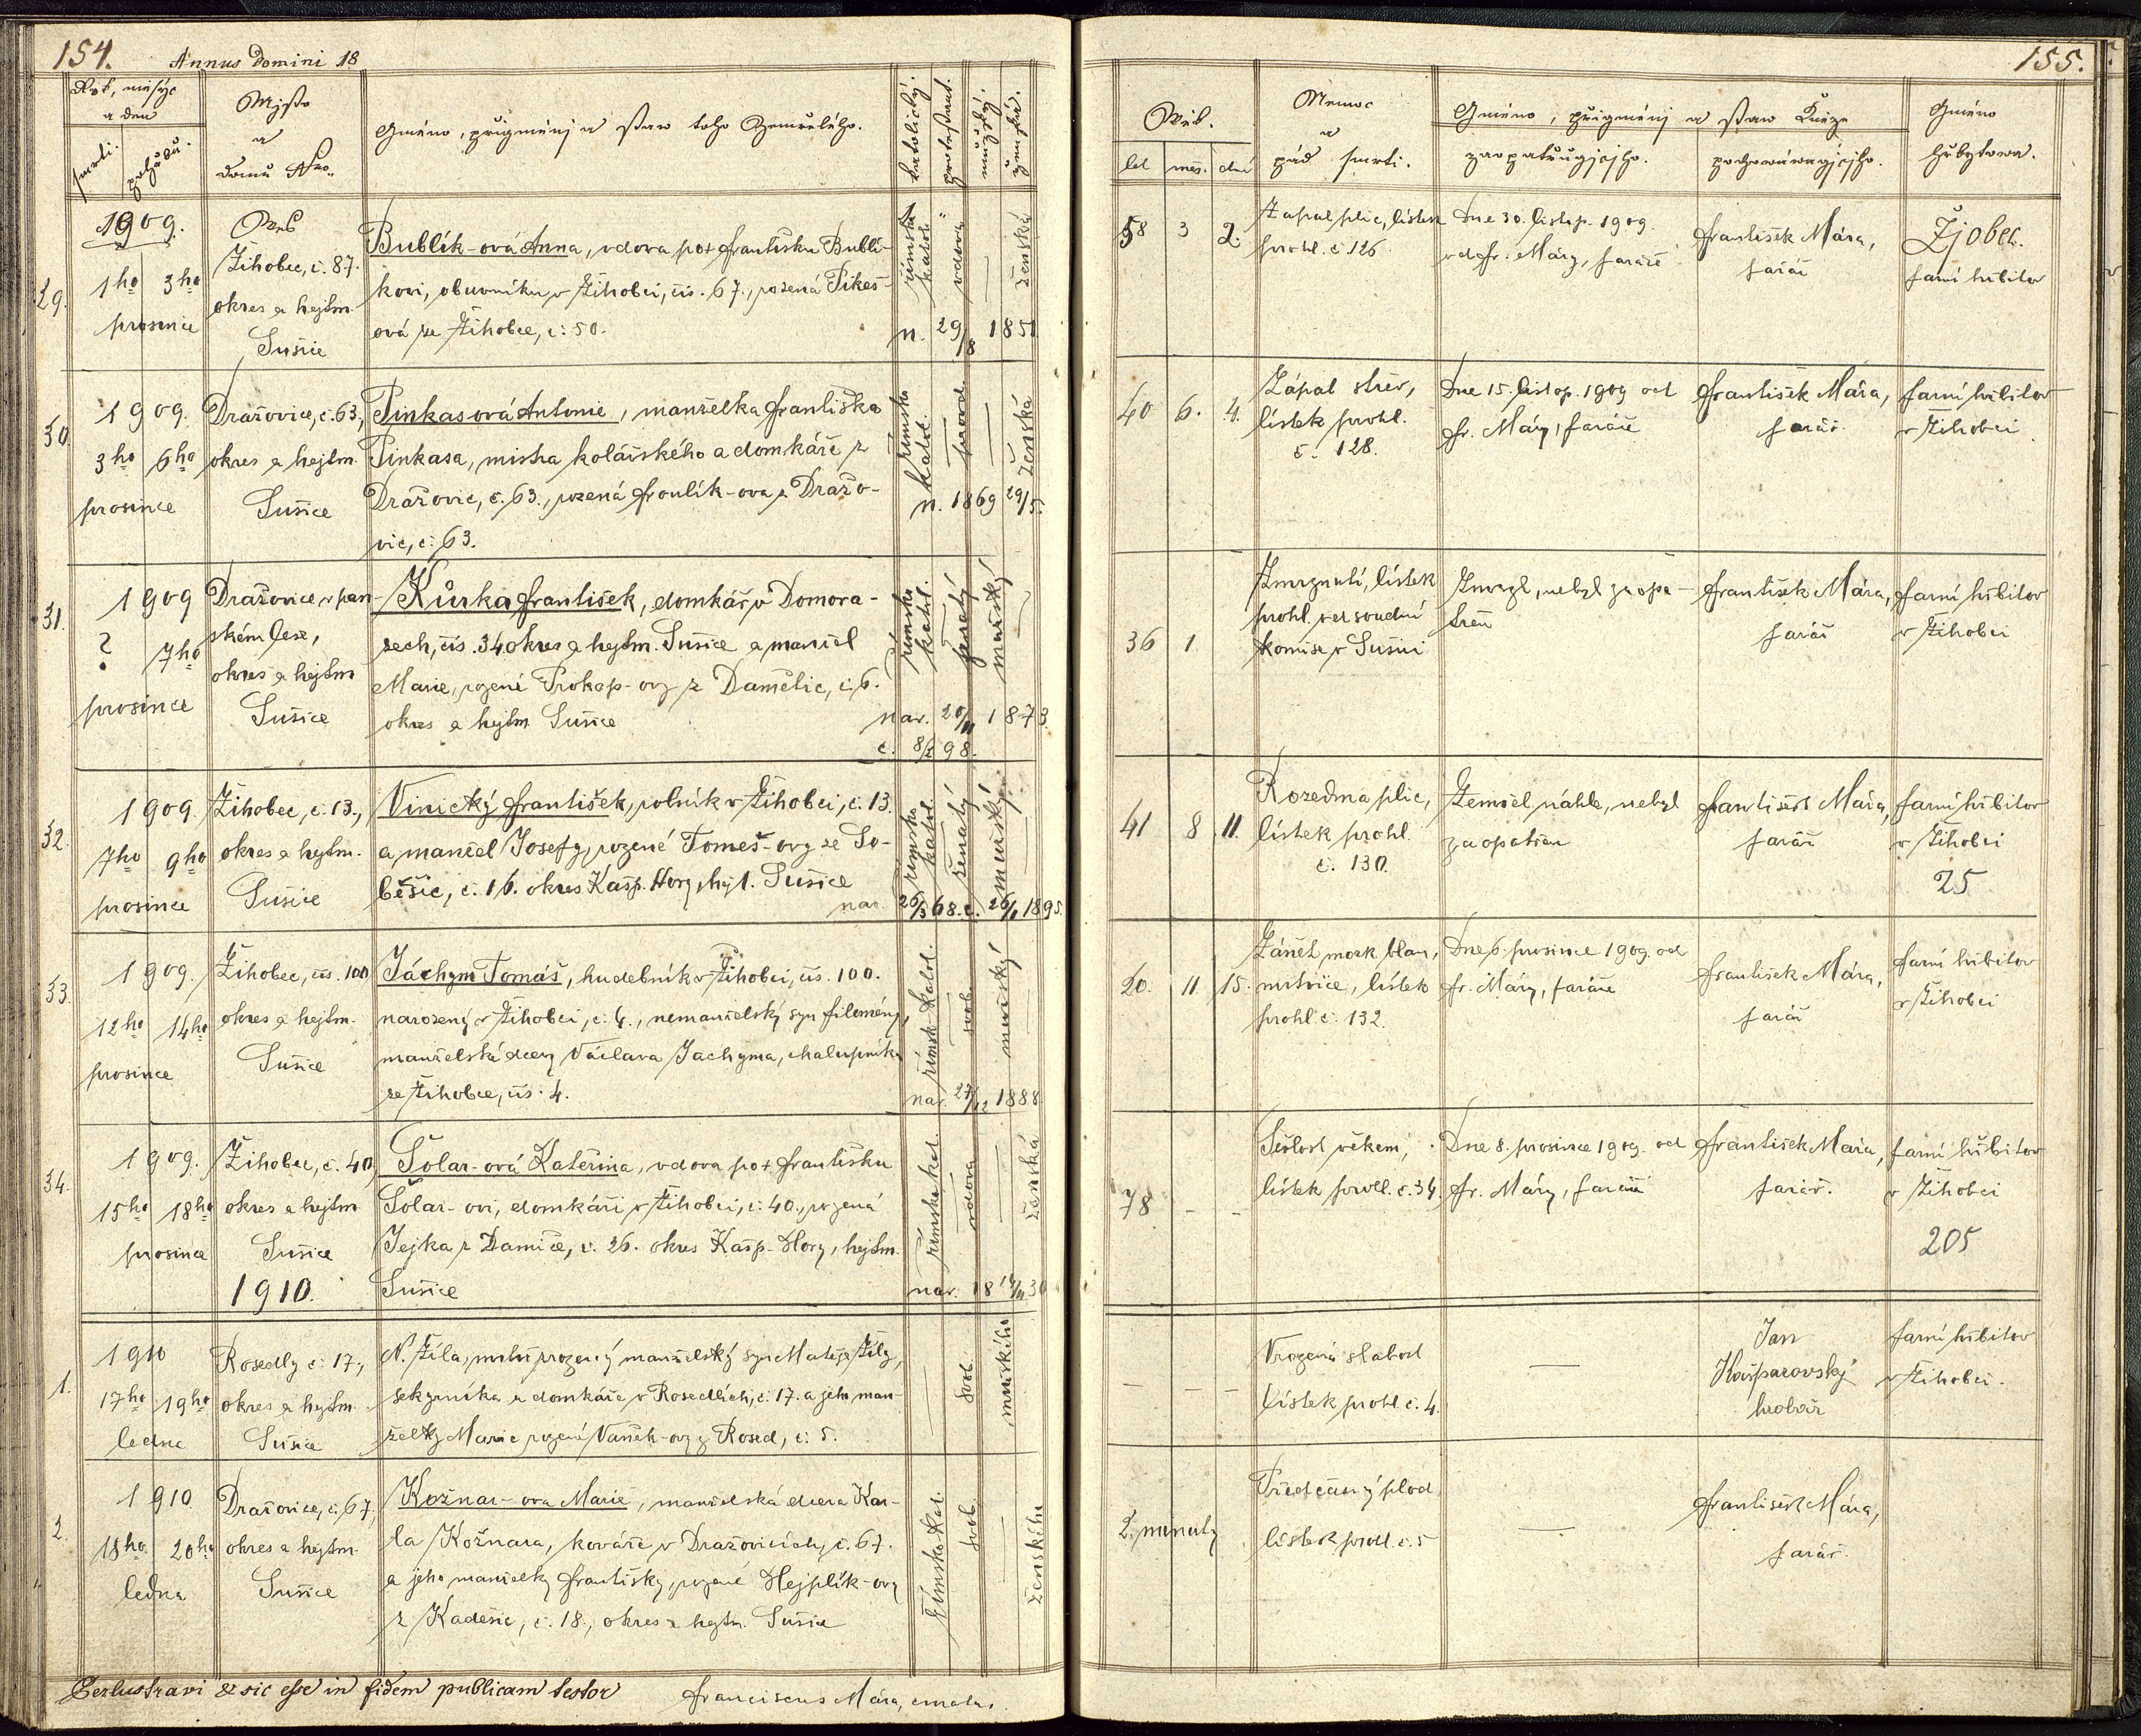 154. Annus Domini 18
Rok, měsýc
a den
smrti. pohřbu.
Mjsto
a
domu Nro.
Gméno, přigménj a staw toho Zemřelého.
katolický.
protestant.
mužský.
ženská.
29.
1909.
1ho 3ho
prosince
Wes
Žihobec, č. 87.
okres a hejtm.
Sušice
Bublík-ová Anna, vdova po + Františku Bublí-
kovi, obuvníku v Žihobci, čís. 67., rozená Pikeš-
ová ze Žihobce, č: 50.
římsko
katol.
vdova
—
ženská
n. 29/8 1851
30.
1909.
3ho 6ho
prosince
Dražovice, č. 63.,
okres a hejtm.
Sušice
Pinkasová Antonie, manželka Františka
Pinkasa, mistra kolářského a domkáře z
Dražovic, č. 63., rozená Froulík-ova z Dražo-
vic, č. 63.
římsko
katol.
provd.
—
ženská
n. 1869 29/5.
31.
1909
? 7ho
prosince
Dražovice, v pan-
ském lese,
okres a hejtm
Sušice
Kůrka František, domkář v Domora-
zech, čís. 34 okres a hejtm. Sušice a manžel
Marie, rozené Prokop-ovy z Damětic, č. 6.
okres a hejtm Sušice
římsko
katol.
ženatý
mužský
nar. 20/11 1873.
č. 8/2 98.
32.
1909.
7ho 9ho
prosince
Žihobec, č. 13.,
okres a hejtm.
Sušice
Vinický František, rolník v Žihobci, č. 13.
a manžel Josefy, rozené Tomeš-ovy ze So-
běšic, č. 16. okres Kašp. Hory, hejt. Sušice
římsko
katol.
ženatý
mužský
nar. 26/3 68. č. 26/1 1895.
33.
1909.
12ho 14ho
prosince
Žihobec, čís. 100
okres a hejtm.
Sušice
Jáchym Tomáš, hudebník v Žihobci, čís. 100.
narozený v Žihobci, č. 4., nemanželský syn Filomény,
manželské dcery Václava Jachyma, chalupníka
ze Žihobce, čís. 4.
římsk. katol.
svob.
mužský
nar. 27/12 1888
34.
1909.
15ho 18ho
prosince
Žihobec, č. 40,
okres a hejtm
Sušice
Šolar-ová Kateřina, vdova po + Františku
Šolar-ovi, domkáři v Žihobci, č: 40., rozená
Jejka z Damíče, č. 26. okres Kašp. Hory, hejtm.
Sušice
římsko kat.
vdova
—
ženská
nar. 18 14/11 30
1910.
1.
1910
17ho 19ho
ledna
Rosedly č: 17.,
okres a hejtm.
Sušice
N. Žíla, mrtvě zrozený manželský syn Matěje Žíly,
sekerníka a domkáře v Rosedlích, č. 17. a jeho man-
želky Marie rozené Vaněk-ovy z Rosed, č: 5.
—
svob.
mužského
2.
1910
18ho 20ho
ledna
Dražovice, č. 67,
okres a hejtm.
Sušice
Kožnar-ova Marie, manželská dcera Kar-
la Kožnara, kováře v Dražovicích, č. 67.
a jeho manželky Františky, rozené Hejplík-ovy
z Kadešic, č. 18., okres a hejtm. Sušice
římsko kat.
svob.
—
ženského
Perlustravi & sic esse in fidem publicam testor Franciscus Mára, curatus.
155.
Wěk.
let měs. dní
Nemoc
a
pád smrti.
Gméno, přigménj a staw Kněze
zaopatřugjcjho. pochowáwagjcjho.
Gméno
hřbytowa.
58 3 2.
Zapal plic, lístek
prohl. č 126
Dne 30. listop. 1909
od Fr. Máry, faráře
František Mára,
farář
Žjobec.
farní hřbitov
40 6. 4.
Zápal střev,
lístek prohl.
č. 128.
Dne 15. listop. 1909 od
Fr. Máry, faráře
František Mára,
farář.
farní hřbitov
v Žihobci
36 1
Zmrznutí, lístek
prohl. od soudní
komise v Sušici
Zmrzl, nebyl zaopa-
třen
František Mára,
farář
farní hřbitov
v Žihobci
41 8 11.
Rozedma plic,
lístek prohl.
č. 130.
Zemřel náhle, nebyl
zaopatřen
František Mára,
farář
farní hřbitov
v Žihobci
25
20. 11. 15.
Zánět mozk. blan,
mrtvice, lístek
prohl. č. 132.
Dne 6. prosince 1909. od
Fr. Máry, faráře
František Mára,
farář
farní hřbitov
v Žihobci
78 - -
Sešlost věkem,
lístek prohl. č. 34.
Dne 8. prosince 1909. od
Fr. Máry, faráře
František Mára,
farář.
farní hřbitov
v Žihobci
205
— — —
Vrozená slabost
Lístek prohl. č. 4.
—
Jan
Kašparovský
hrobař
farní hřbitov
v Žihobci.
2. minuty
Předčasný plod
lístek prohl. č. 5
—
František Mára,
farář.